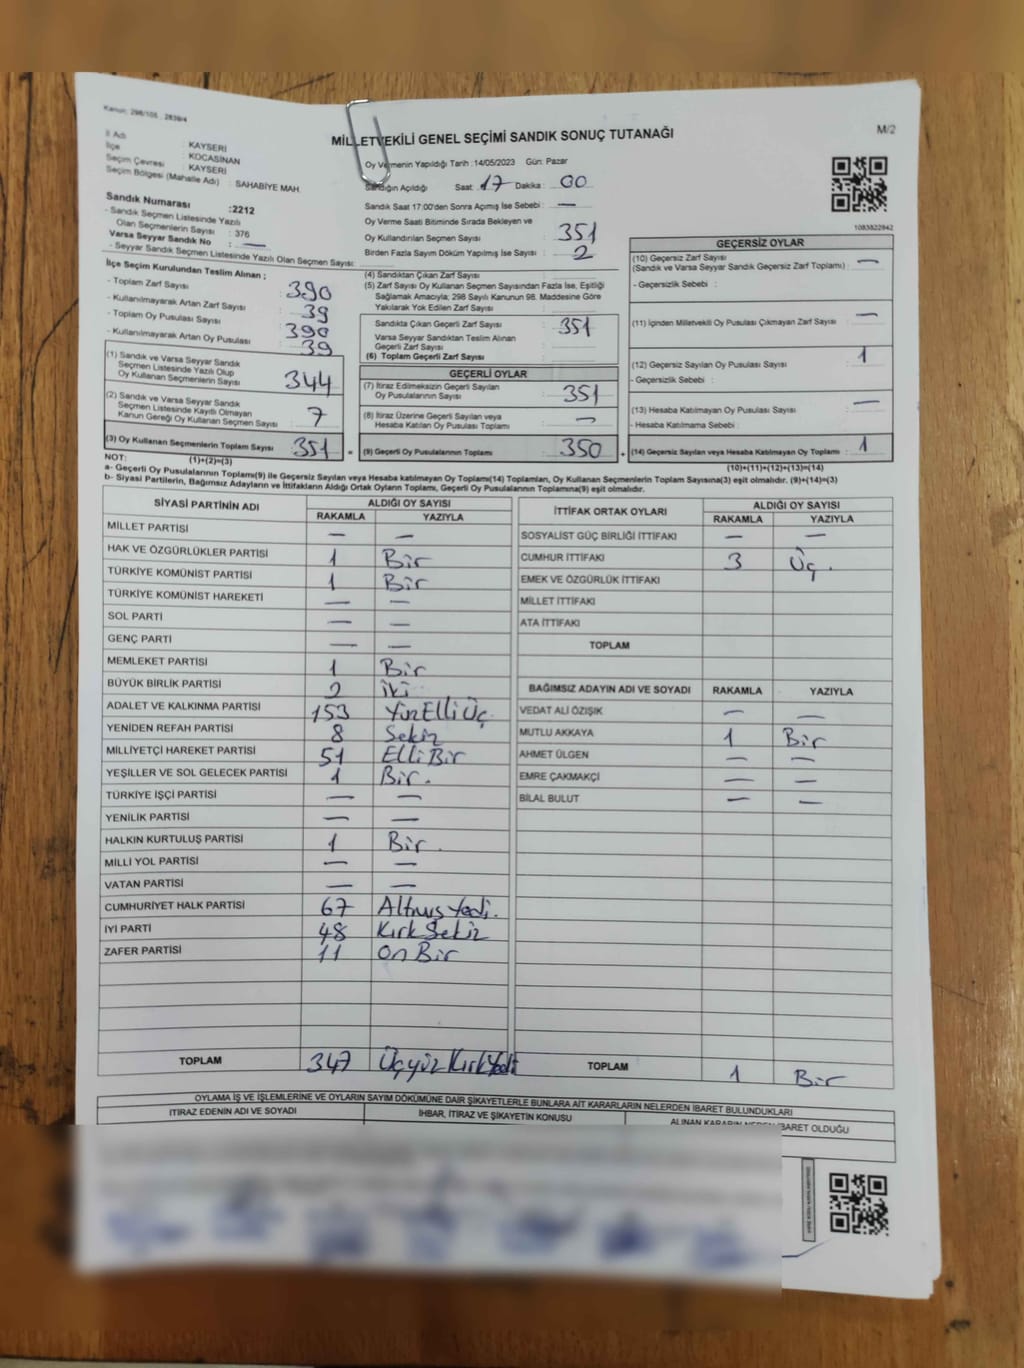 Kanun: 298/105 , 2839/4
MİLLETVEKİLİ GENEL SEÇİMİ SANDIK SONUÇ TUTANAĞI
M/2
İl Adı : KAYSERİ
İlçe : KOCASİNAN
Seçim Çevresi : KAYSERİ
Seçim Bölgesi (Mahalle Adı) : SAHABİYE MAH.
Sandık Numarası :2212
- Sandık Seçmen Listesinde Yazılı
Olan Seçmenlerin Sayısı : 376
Varsa Seyyar Sandık No : —
- Seyyar Sandık Seçmen Listesinde Yazılı Olan Seçmen Sayısı:
Oy Vermenin Yapıldığı Tarih :14/05/2023 Gün: Pazar
Sandığın Açıldığı Saat : 17 Dakika : 00
Sandık Saat 17:00'den Sonra Açılmış İse Sebebi : —
Oy Verme Saati Bitiminde Sırada Bekleyen ve
Oy Kullandırılan Seçmen Sayısı : 351
Birden Fazla Sayım Döküm Yapılmış İse Sayısı : 2
1083822942
İlçe Seçim Kurulundan Teslim Alınan ;
- Toplam Zarf Sayısı : 390
- Kullanılmayarak Artan Zarf Sayısı : 39
- Toplam Oy Pusulası Sayısı : 390
- Kullanılmayarak Artan Oy Pusulası : 39
(1) Sandık ve Varsa Seyyar Sandık
Seçmen Listesinde Yazılı Olup
Oy Kullanan Seçmenlerin Sayısı : 344
(2) Sandık ve Varsa Seyyar Sandık
Seçmen Listesinde Kayıtlı Olmayan
Kanun Gereği Oy Kullanan Seçmen Sayısı : 7
(3) Oy Kullanan Seçmenlerin Toplam Sayısı : 351 =
(4) Sandıktan Çıkan Zarf Sayısı :
(5) Zarf Sayısı Oy Kullanan Seçmen Sayısından Fazla İse, Eşitliği
Sağlamak Amacıyla; 298 Sayılı Kanunun 98. Maddesine Göre
Yakılarak Yok Edilen Zarf Sayısı :
Sandıkta Çıkan Geçerli Zarf Sayısı : 351
Varsa Seyyar Sandıktan Teslim Alınan
Geçerli Zarf Sayısı :
(6) Toplam Geçerli Zarf Sayısı :
GEÇERLİ OYLAR
(7) İtiraz Edilmeksizin Geçerli Sayılan
Oy Pusulalarının Sayısı : 351
(8) İtiraz Üzerine Geçerli Sayılan veya
Hesaba Katılan Oy Pusulası Toplamı : —
(9) Geçerli Oy Pusulalarının Toplamı : 350 +
GEÇERSİZ OYLAR
(10) Geçersiz Zarf Sayısı
(Sandık ve Varsa Seyyar Sandık Geçersiz Zarf Toplamı) : —
- Geçersizlik Sebebi :
(11) İçinden Milletvekili Oy Pusulası Çıkmayan Zarf Sayısı : —
(12) Geçersiz Sayılan Oy Pusulası Sayısı : 1
- Geçersizlik Sebebi :
(13) Hesaba Katılmayan Oy Pusulası Sayısı : —
- Hesaba Katılmama Sebebi :
(14) Geçersiz Sayılan veya Hesaba Katılmayan Oy Toplamı : 1
NOT: (1)+(2)=(3)
(10)+(11)+(12)+(13)=(14)
a- Geçerli Oy Pusulalarının Toplamı(9) ile Geçersiz Sayılan veya Hesaba katılmayan Oy Toplamı(14) Toplamları, Oy Kullanan Seçmenlerin Toplam Sayısına(3) eşit olmalıdır. (9)+(14)=(3)
b- Siyasi Partilerin, Bağımsız Adayların ve İttifakların Aldığı Ortak Oyların Toplamı, Geçerli Oy Pusulalarının Toplamına(9) eşit olmalıdır.
SİYASİ PARTİNİN ADI ALDIĞI OY SAYISI
RAKAMLA YAZIYLA
MİLLET PARTİSİ — —
HAK VE ÖZGÜRLÜKLER PARTİSİ 1 Bir
TÜRKİYE KOMÜNİST PARTİSİ 1 Bir
TÜRKİYE KOMÜNİST HAREKETİ — —
SOL PARTİ — —
GENÇ PARTİ — —
MEMLEKET PARTİSİ 1 Bir
BÜYÜK BİRLİK PARTİSİ 2 iki
ADALET VE KALKINMA PARTİSİ 153 YüzElliÜç
YENİDEN REFAH PARTİSİ 8 Sekiz
MİLLİYETÇİ HAREKET PARTİSİ 51 ElliBir
YEŞİLLER VE SOL GELECEK PARTİSİ 1 Bir.
TÜRKİYE İŞÇİ PARTİSİ — —
YENİLİK PARTİSİ — —
HALKIN KURTULUŞ PARTİSİ 1 Bir.
MİLLİ YOL PARTİSİ — —
VATAN PARTİSİ — —
CUMHURİYET HALK PARTİSİ 67 Altmış Yedi.
İYİ PARTİ 48 Kırk Sekiz
ZAFER PARTİSİ 11 On Bir
TOPLAM 347 Üçyüz Kırk Yedi
İTTİFAK ORTAK OYLARI ALDIĞI OY SAYISI
RAKAMLA YAZIYLA
SOSYALİST GÜÇ BİRLİĞİ İTTİFAKI — —
CUMHUR İTTİFAKI 3 Üç.
EMEK VE ÖZGÜRLÜK İTTİFAKI
MİLLET İTTİFAKI
ATA İTTİFAKI
TOPLAM
BAĞIMSIZ ADAYIN ADI VE SOYADI RAKAMLA YAZIYLA
VEDAT ALİ ÖZIŞIK — —
MUTLU AKKAYA 1 Bir
AHMET ÜLGEN — —
EMRE ÇAKMAKÇİ — —
BİLAL BULUT — —
TOPLAM 1 Bir
OYLAMA İŞ VE İŞLEMLERİNE VE OYLARIN SAYIM DÖKÜMÜNE DAİR ŞİKAYETLERLE BUNLARA AİT KARARLARIN NELERDEN İBARET BULUNDUKLARI
İTİRAZ EDENİN ADI VE SOYADI İHBAR, İTİRAZ VE ŞİKAYETİN KONUSU ALINAN KARARIN NEDEN İBARET OLDUĞU